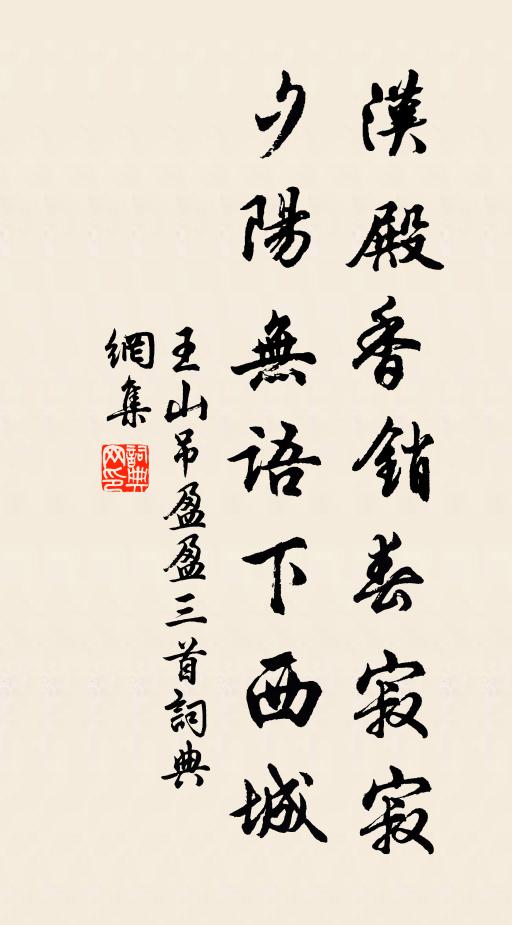 漢殿香銷春寂寂
夕陽無語下西城
王山吊盈盈三首詞典
網集
詞典
网印